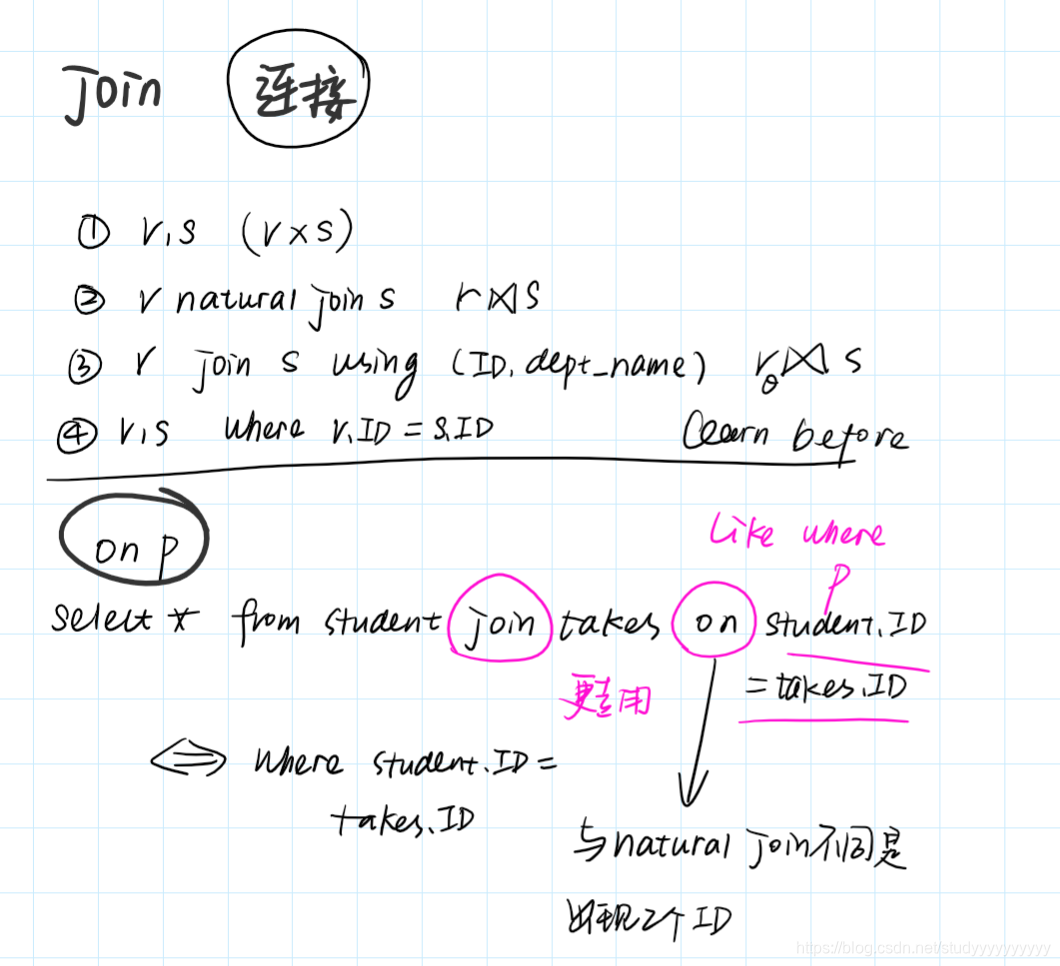 join 连接
① r,s (r×s)
② r natural join s r⋈s
③ r join s using (ID, dept_name) r⋈θ s
④ r,s where r.ID = s.ID learn before
on p
Like where
p
select * from student join takes on student.ID
= takes.ID
更专用
⇔ where student.ID =
takes.ID
与natural join不同是
出现2个ID
https://blog.csdn.net/studyyyyyyyyyy